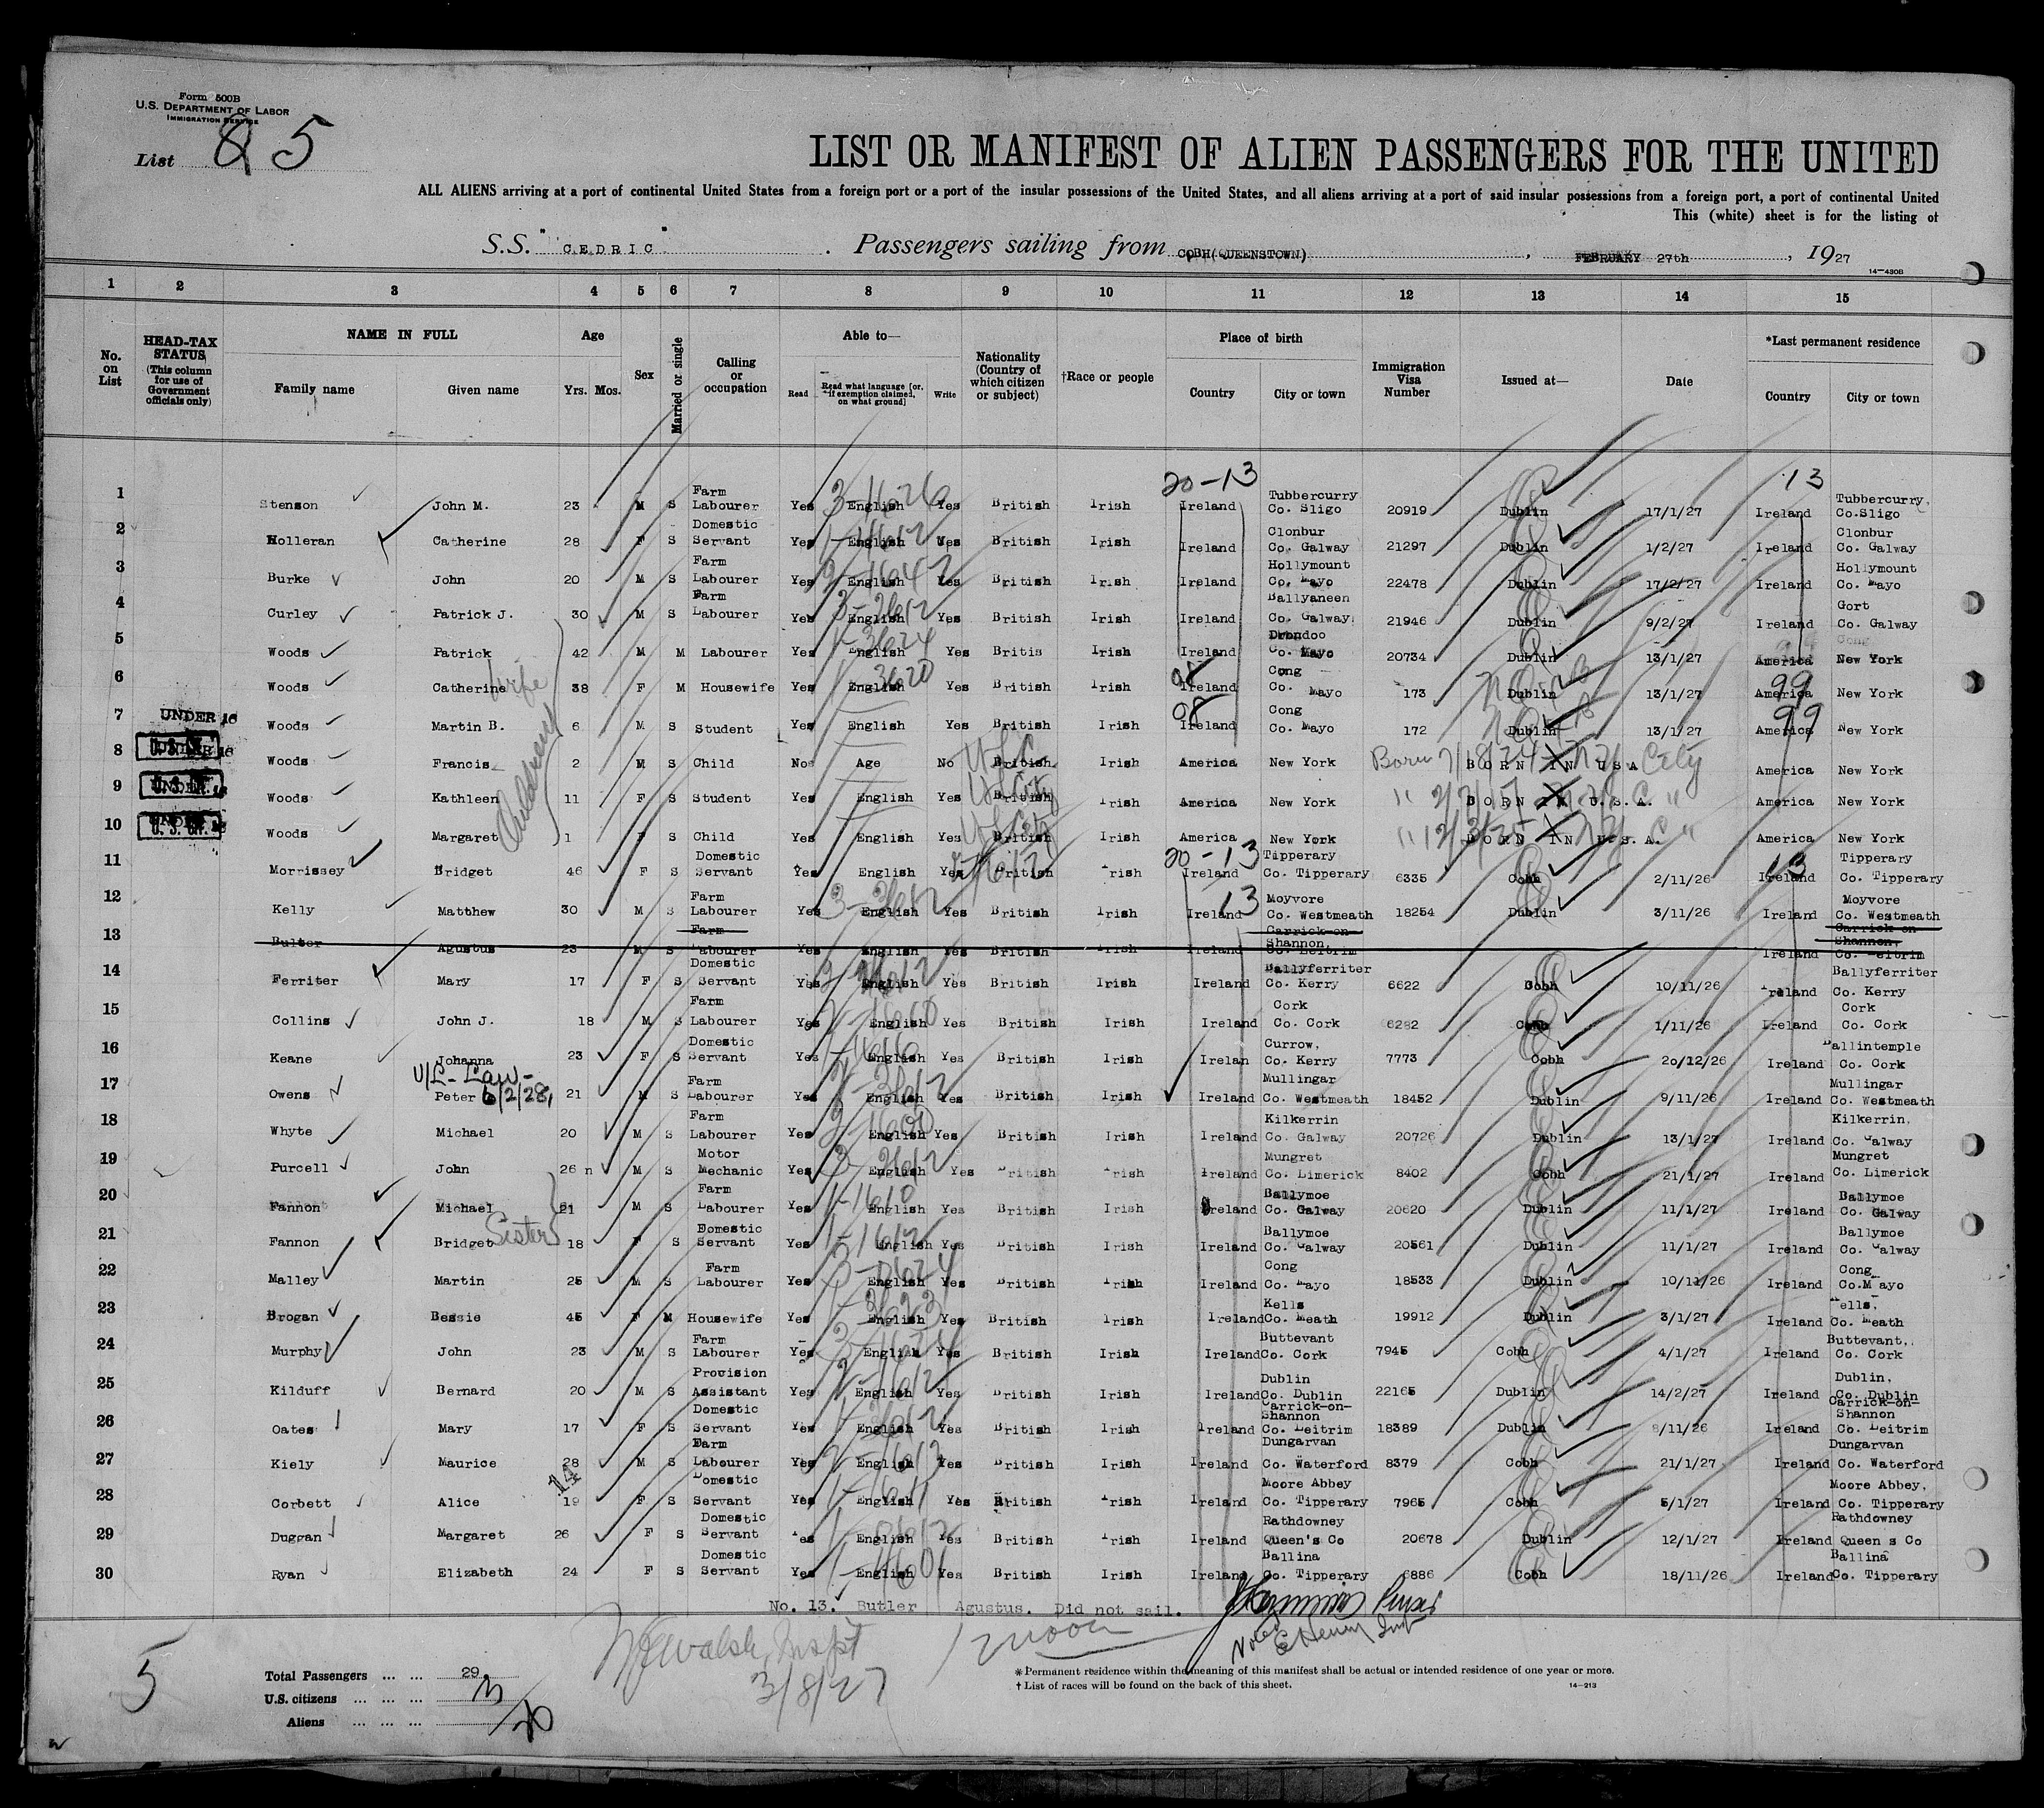 Form 500B
U.S. DEPARTMENT OF LABOR
IMMIGRATION SERVICE
List 5
LIST OR MANIFEST OF ALIEN PASSENGERS FOR THE UNITED
ALL ALIENS arriving at a port of continental United States from a foreign port or a port of the insular possessions of the United States, and all aliens arriving at a port of said insular possessions from a foreign port, a port of continental United
This (white) sheet is for the listing of
S.S. "CEDRIC" . Passengers sailing from COBH(QUEENSTOWN), FEBRUARY 27th, 1927
14—430B
1 2 3 4 5 6 7 8 9 10 11 12 13 14 15
No. on List
HEAD-TAX STATUS (This column for use of Government officials only)
NAME IN FULL Family name Given name
Age Yrs. Mos.
Sex
Married or single
Calling or occupation
Able to— Read Read what language [or, if exemption claimed, on what ground] Write
Nationality (Country of which citizen or subject)
†Race or people
Place of birth Country City or town
Immigration Visa Number
Issued at—
Date
*Last permanent residence Country City or town
20-13 13
1 Stenson John M. 23 M S Farm Labourer Yes English Yes British Irish Ireland Tubbercurry Co. Sligo 20919 Dublin 17/1/27 Ireland Tubbercurry, Co.Sligo
2 Holleran Catherine 28 F S Domestic Servant Yes English Yes British Irish Ireland Clonbur Co. Galway 21297 Dublin 1/2/27 Ireland Clonbur Co. Galway
3 Burke John 20 M S Farm Labourer Yes English Yes British Irish Ireland Hollymount Co. Mayo 22478 Dublin 17/2/27 Ireland Hollymount Co. Mayo
4 Curley Patrick J. 30 M S Farm Labourer Yes English Yes British Irish Ireland Ballyaneen Co. Galway 21946 Dublin 9/2/27 Ireland Gort Co. Galway
5 Woods Patrick 42 M M Labourer Yes English Yes Britis Irish Ireland Co. Mayo 20734 Dublin 13/1/27 America New York
6 Woods Catherine wife 38 F M Housewife Yes English Yes British Irish Ireland Cong Co. Mayo 173 Dublin 13/1/27 99 America New York
7 UNDER 16 Woods Martin B. 6 M S Student Yes English Yes British Irish Ireland Cong Co. Mayo 172 Dublin 13/1/27 99 America New York
8 Woods Francis 2 M S Child No Age No British Irish America New York Born 7/18/24 BORN IN USA N.Y. City America New York
9 Woods Kathleen 11 F S Student Yes English Yes British Irish America New York BORN IN U.S.A. America New York
10 Woods Margaret 1 F S Child Yes English Yes British Irish America New York BORN IN U.S.A. America New York
Children
11 Morrissey Bridget 46 F S Domestic Servant Yes English Yes British Irish 20-13 Ireland Tipperary Co. Tipperary 6335 Cobh 2/11/26 13 Ireland Tipperary Co. Tipperary
12 Kelly Matthew 30 M S Farm Labourer Yes English Yes British Irish 13 Ireland Moyvore Co. Westmeath 18254 Dublin 3/11/26 Ireland Moyvore Co. Westmeath
13 Butler Agustus 23 M S Farm Labourer Yes English Yes British Irish Ireland Carrick-on-Shannon, Co. Leitrim Ireland Carrick-on Shannon, Co. Leitrim
14 Ferriter Mary 17 F S Domestic Servant Yes English Yes British Irish Ireland Ballyferriter Co. Kerry 6622 Cobh 10/11/26 Ireland Ballyferriter Co. Kerry
15 Collins John J. 18 M S Farm Labourer Yes English Yes British Irish Ireland Cork Co. Cork 6282 Cobh 1/11/26 Ireland Cork Co. Cork
16 Keane Johanna 23 F S Domestic Servant Yes English Yes British Irish Irelan Currow, Co. Kerry 7773 Cobh 20/12/26 Ireland Ballintemple Co. Cork
V/L- Law- 6/2/28,
17 Owens Peter 21 M S Farm Labourer Yes English Yes British Irish Ireland Mullingar Co. Westmeath 18452 Dublin 9/11/26 Ireland Mullingar Co. Westmeath
18 Whyte Michael 20 M S Farm Labourer Yes English Yes British Irish Ireland Kilkerrin Co. Galway 20726 Dublin 13/1/27 Ireland Kilkerrin, Co. Galway
19 Purcell John 26 n M S Motor Mechanic Yes English Yes British Irish Ireland Mungret Co. Limerick 8402 Cobh 21/1/27 Ireland Mungret Co. Limerick
20 Fannon Michael 21 M S Farm Labourer Yes English Yes British Irish Ireland Ballymoe Co. Galway 20620 Dublin 11/1/27 Ireland Ballymoe Co. Galway
21 Fannon Bridget Sister 18 F S Domestic Servant Yes English Yes British Irish Ireland Ballymoe Co. Galway 20561 Dublin 11/1/27 Ireland Ballymoe Co. Galway
22 Malley Martin 25 M S Farm Labourer Yes English Yes British Irish Ireland Cong Co. Mayo 18533 Dublin 10/11/26 Ireland Cong Co.Mayo
23 Brogan Bessie 45 F M Housewife Yes English Yes British Irish Ireland Kells Co. Meath 19912 Dublin 3/1/27 Ireland Kells, Co. Meath
24 Murphy John 23 M S Farm Labourer Yes English Yes British Irish Ireland Buttevant Co. Cork 7945 Cobh 4/1/27 Ireland Buttevant, Co. Cork
25 Kilduff Bernard 20 M S Provision Assistant Yes English Yes British Irish Ireland Dublin Co. Dublin 22165 Dublin 14/2/27 Ireland Dublin, Co. Dublin
26 Oates Mary 17 F S Domestic Servant Yes English Yes British Irish Ireland Carrick-on-Shannon Co. Leitrim 18389 Dublin 8/11/26 Ireland Carrick-on-Shannon Co. Leitrim
27 Kiely Maurice 28 M S Farm Labourer Yes English Yes British Irish Ireland Dungarvan Co. Waterford 8379 Cobh 21/1/27 Ireland Dungarvan Co. Waterford
28 Corbett Alice 19 F S Domestic Servant Yes English Yes British Irish Ireland Moore Abbey Co. Tipperary 7965 Cobh 5/1/27 Ireland Moore Abbey, Co. Tipperary
29 Duggan Margaret 26 F S Domestic Servant Yes English Yes British Irish Ireland Rathdowney Queen's Co 20678 Dublin 12/1/27 Ireland Rathdowney Queen s Co
30 Ryan Elizabeth 24 F S Domestic Servant Yes English Yes British Irish Ireland Ballina Co. Tipperary 6886 Cobh 18/11/26 Ireland Ballina Co. Tipperary
No. 13. Butler Agustus. Did not sail.
Walsh, Inspt
3/8/27
Noted E Henry Insp
5
Total Passengers ... ... 29
U.S. citizens ... ... ... 3
Aliens ... ... ... 26
*Permanent residence within the meaning of this manifest shall be actual or intended residence of one year or more.
†List of races will be found on the back of this sheet.
14—213